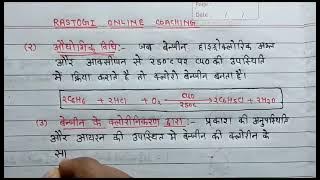 RASTOGI ONLINE COACHING
Date
(२) औद्योगिक विधि:- जब बेन्जीन हाइड्रोक्लोरिक अम्ल
और आक्सीजन से 250°C पर CuO की उपस्थिति
में क्रिया कराते है तो क्लोरो बेन्जीन बनता है।
2C6H6 + 2HCl + O2 CuO 250C 2C6H5Cl + 2H2O
(३) बेन्जीन के क्लोरीनीकरण द्वारा:- प्रकाश की अनुपस्थिति
और आयरन की उपस्थित में बेन्जीन की क्लोरीन के
सा